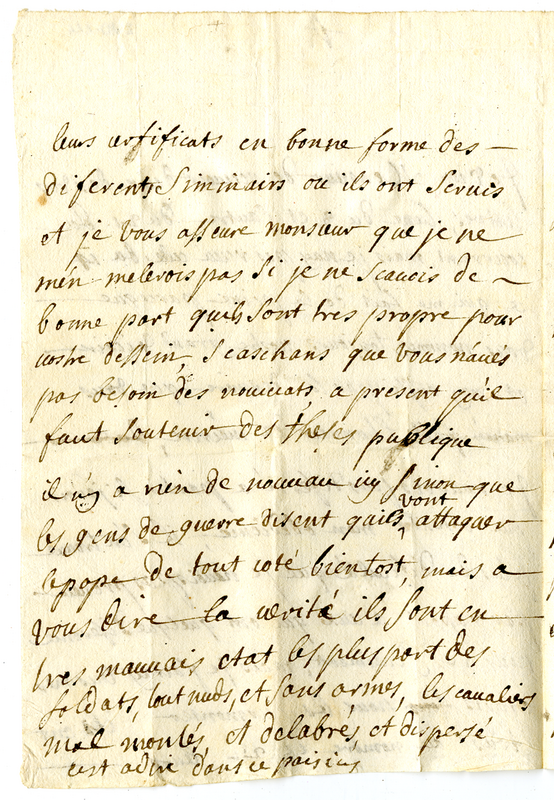 leurs certificats en bonne forme des —
diferents Siminairs ou ils ont Servis
et je vous asseure monsieur que je ne
m'en melerois pas Si je ne Scavois de —
bonne part quils Sont tres propre pour
vostre dessein, Scaschans que vous n'avés
pas besoin des novicats, a present quil
faut Soutenir des theses publique
il n'y a rien de nouveau icy Sinon que
les gens de guerre disent quils vont attaquer
le pape de tout coté bientost, mais a
vous dire la verité ils Sont en
tres mauvais etat les plus part des
Soldats, tout nuds, et Sans armes, les cavaliers
mal montés, et delabrés et dispersé
cest adire dans ce pais icy